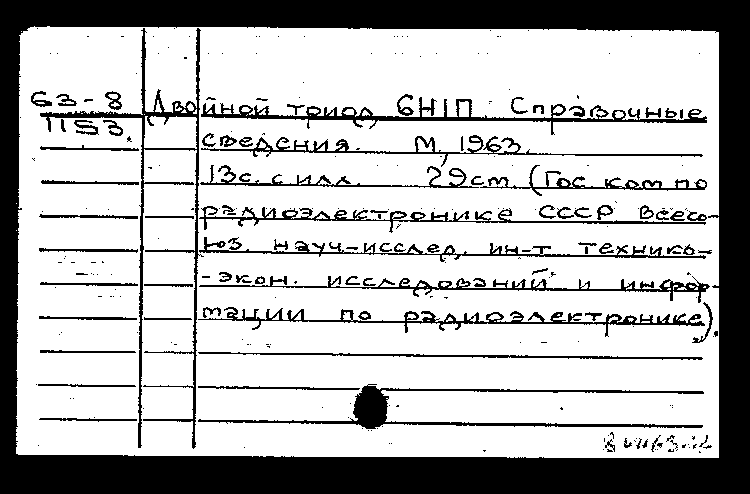 63-8 Двойной триод 6Н1П. Справочные
1153. сведения. М, 1963.
13с. с илл. 29см. (Гос. ком по
радиоэлектронике СССР Всесо-
юз. науч-исслед. ин-т технико-
-экон. исследований и инфор-
мации по радиоэлектронике).